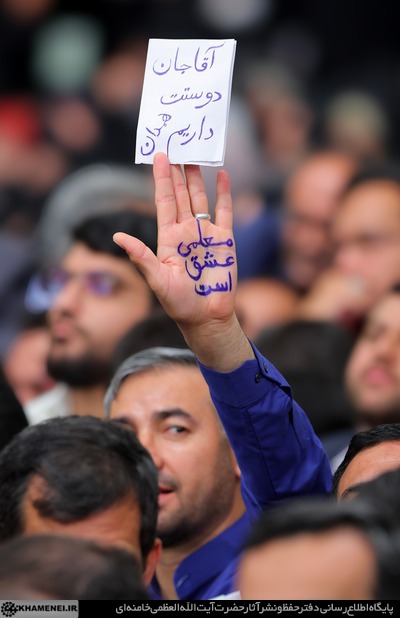 آقاجان
دوستت
داریم همدان
معلمی
عشق
است
KHAMENEI.IR
پایگاه اطلاع‌رسانی دفتر حفظ و نشر آثار حضرت آیت‌الله‌العظمی خامنه‌ای